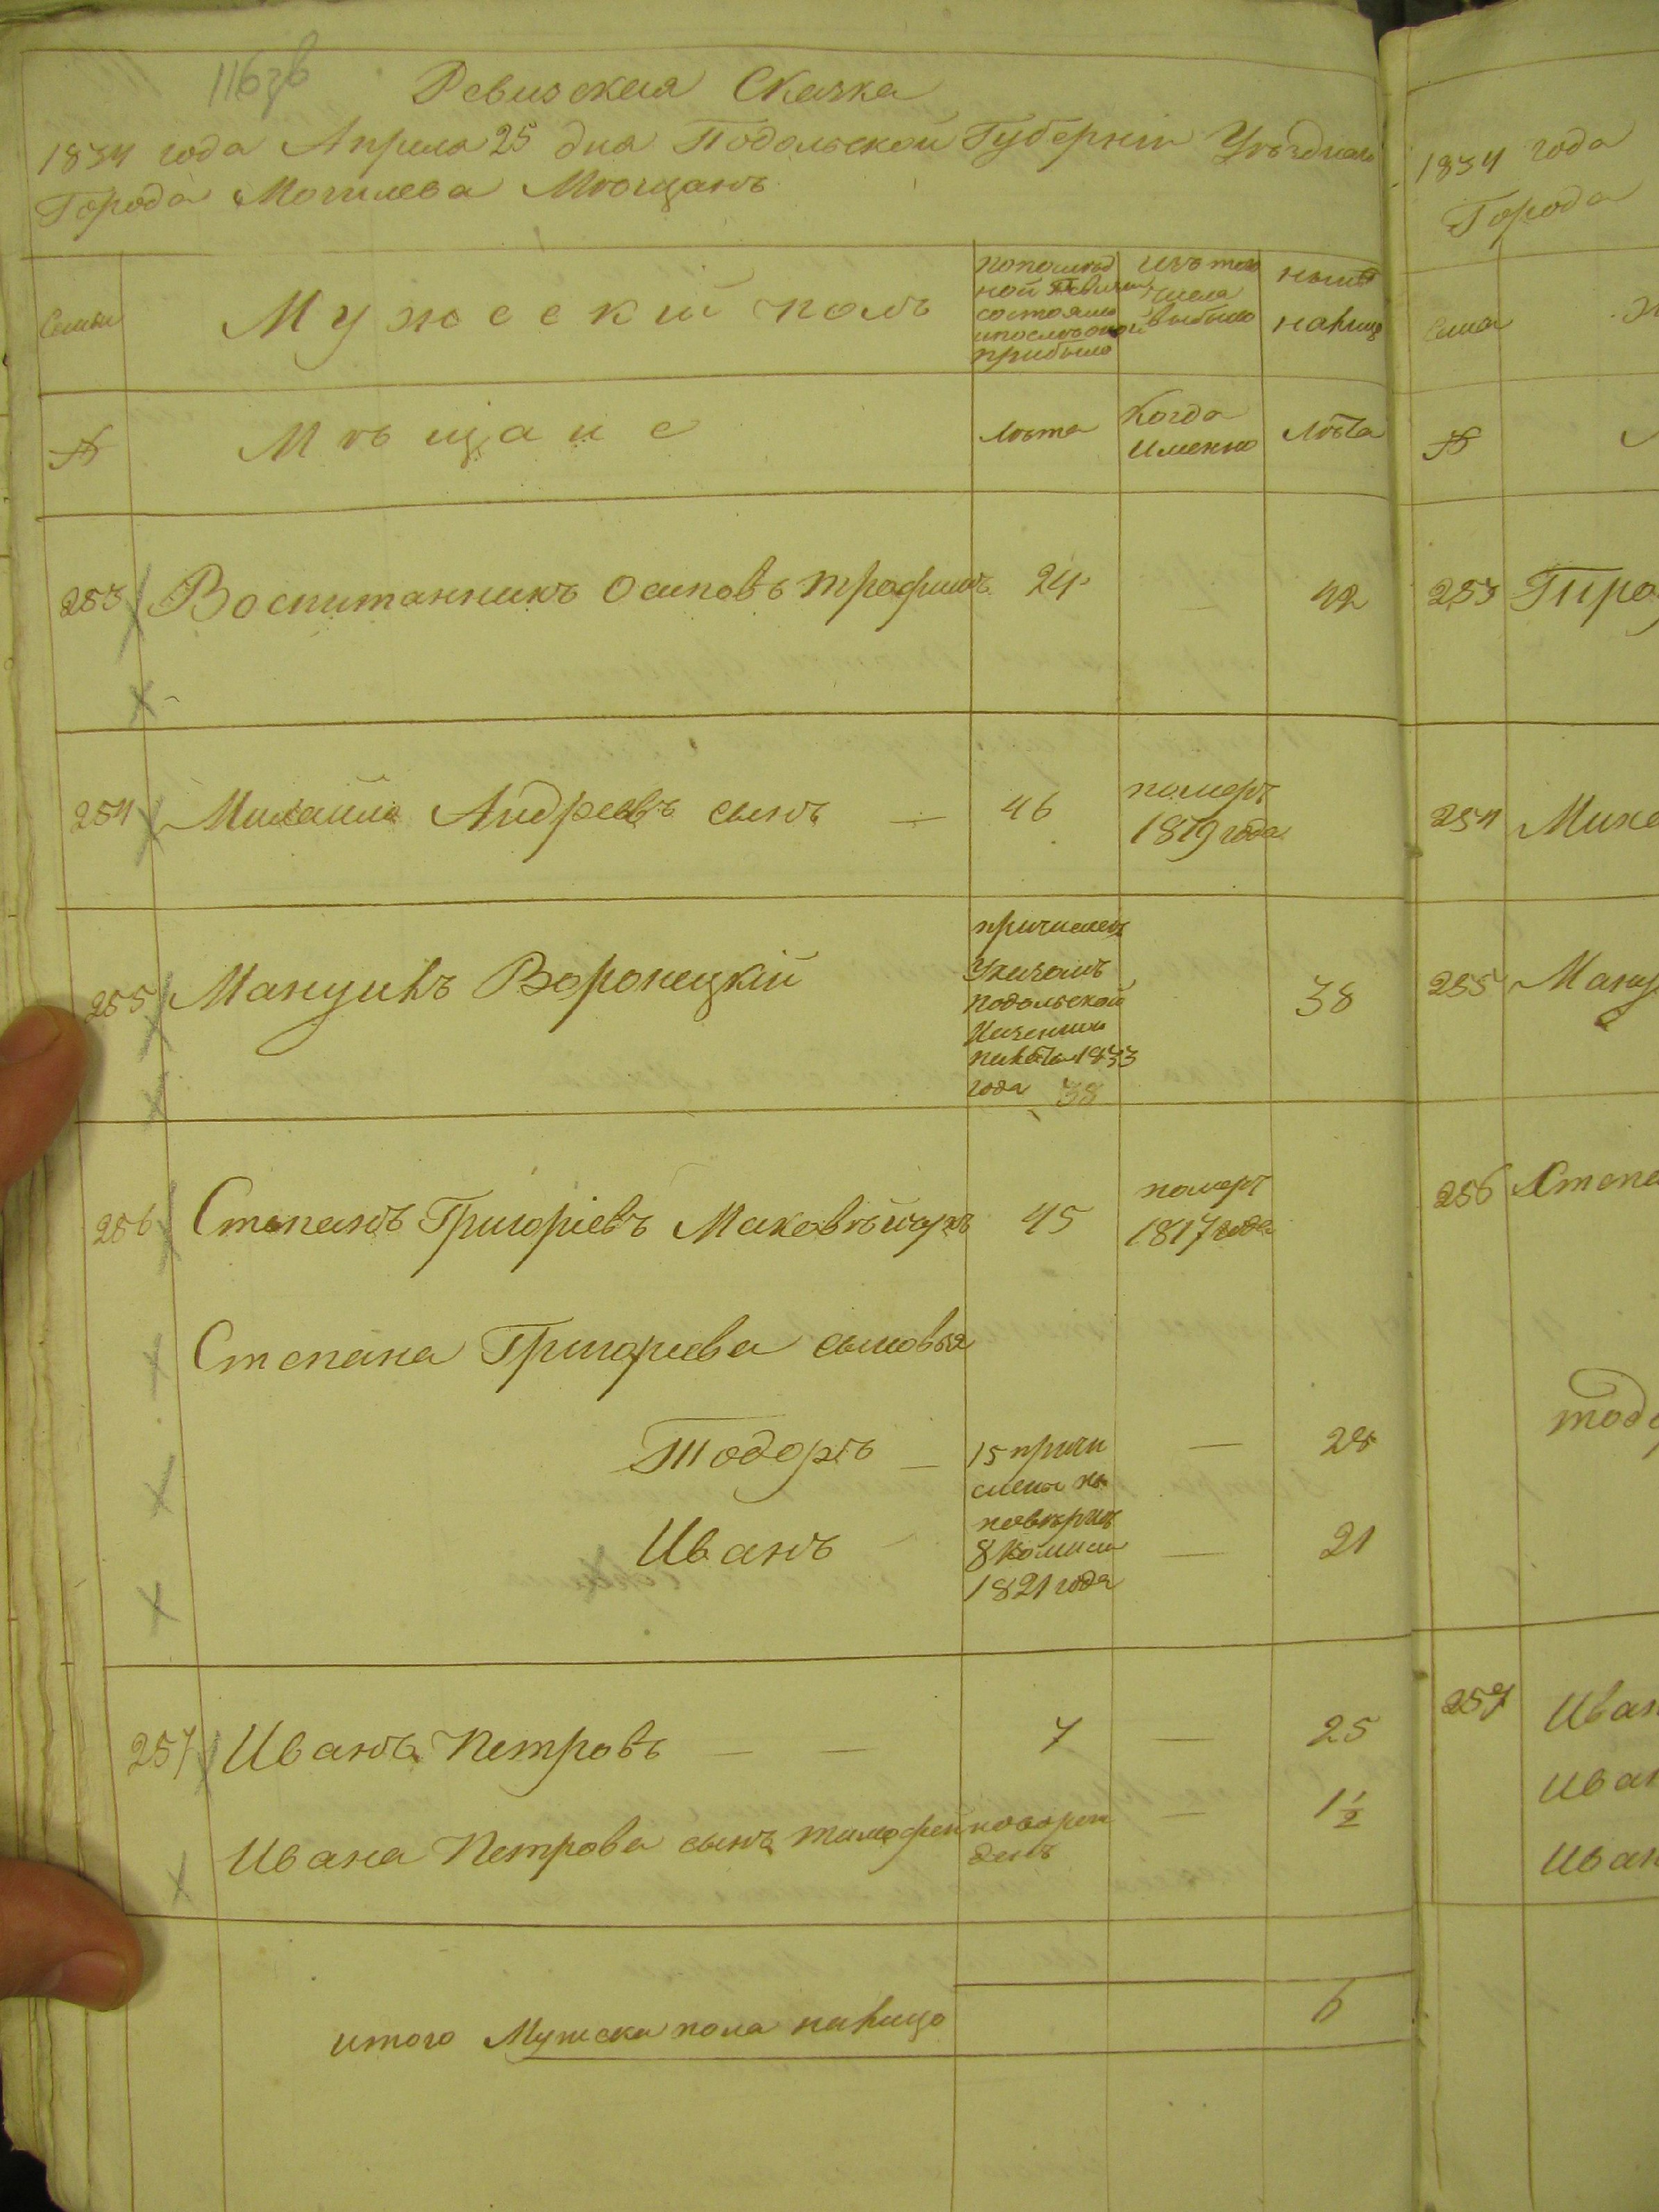 116зв
Ревизская Сказка
1834 года Апреля 25 дня Подольской Губернiи Уѣзднаго
Города Могилева Мѣщанъ
Семьи
Мужеский полъ
По последней Ревизии состояло и после оной прибыло
Изъ того числа выбыло
Ныне на лицо
№
Мѣщане
Лѣта
Когда Именно
Лѣта
253 Воспитанникъ Осиповъ Трофимъ 24 — 42
254 Михайло Андреевъ сынъ — 46 померъ 1819 года
255 Мануилъ Воронецкiй причисленъ Указомъ Подольской Казенной Палаты 1833 года 38 38
256 Степанъ Григорiевъ 45 померъ 1817 года
Степана Григориева сыновья
Тодоръ — 15 — 28
Иванъ 8 — 21
1821 года
257 Иванъ Петровъ — — 7 — 25
Ивана Петрова сынъ Тимофей новорожденъ — 1½
итого Мужска пола налицо 6
1834 года
Города
Семьи
№
253
254
255
256 Степа
257 Иван
Иван
Иван